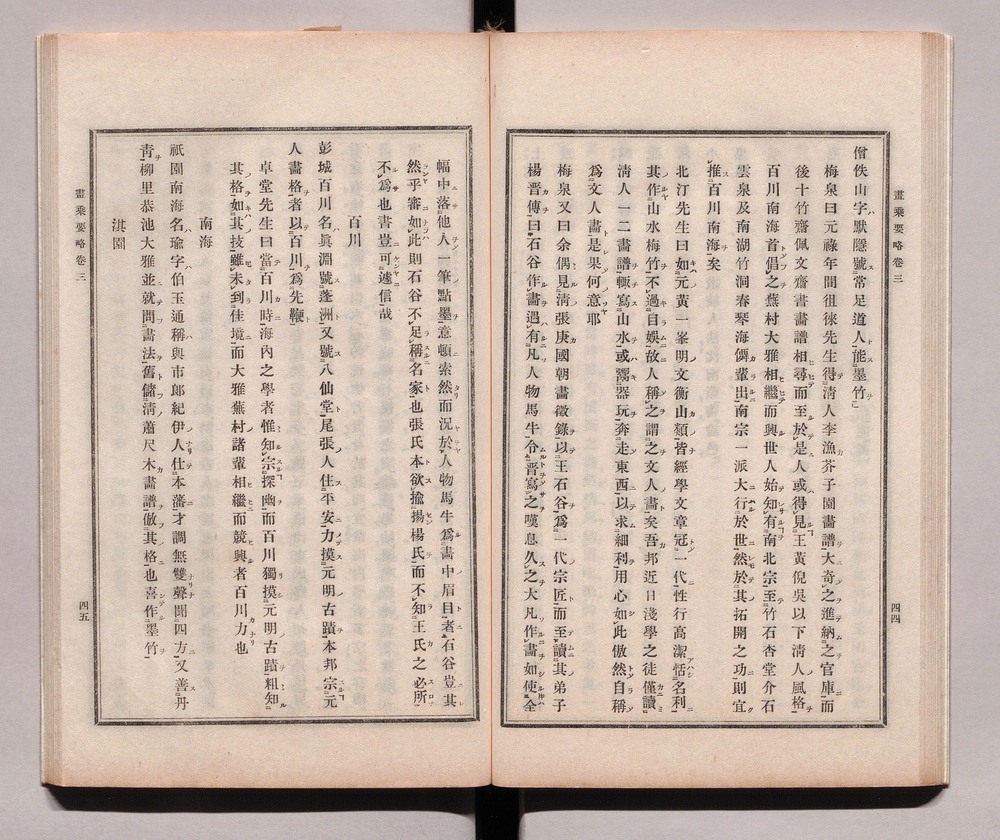 畫乘要略卷三
四四
僧佚山字默隱號常足道人能墨竹
梅泉曰元祿年間徂徠先生得淸人李漁芥子園畫譜大奇之進納之官庫而
後十竹齋佩文齋書畫譜相尋而至於是人或得見王黃倪吳以下淸人風格
百川南海首倡之蕪村大雅相繼而興世人始知有南北宗至竹石杏堂介石
雲泉及南湖竹洞春琴海僊輩出南宗一派大行於世然於其拓開之功則宜
推百川南海矣
北汀先生曰如元黃一峯明文衡山類皆經學文章冠一代性行高潔恬名利
其作山水梅竹不過自娛故人稱之謂之文人畫矣吾邦近日淺學之徒僅讀
淸人一二畫譜輙寫山水或鬻器玩奔走東西以求細利用心如此傲然自稱
爲文人畫是果何意耶
梅泉又曰余偶見淸張庚國朝畫徵錄以王石谷爲一代宗匠而至讀其弟子
楊晋傳曰石谷作畫遇有凡人物馬牛令晋寫之嘆息久之大凡作畫如使全
幅中落他人一筆點墨意頓索然而況於人物馬牛爲畫中眉目者石谷豈其
然乎審如此則石谷不足稱名家也張氏本欲揄揚楊氏而不知王氏之必所
不爲也書豈可遽信哉
百川
彭城百川名眞淵號蓬洲又號八仙堂尾張人住平安力摸元明古蹟本邦宗元
人畫格者以百川爲先鞭
卓堂先生曰當百川時海內之學者惟知宗探幽而百川獨摸元明古蹟粗知
其格如其技雖未到佳境而大雅蕪村諸輩相繼而競興者百川力也
南海
祇園南海名瑜字伯玉通稱與市郎紀伊人仕本藩才調無雙聲聞四方又善丹
靑柳里恭池大雅並就問畫法舊儲淸蕭尺木畫譜倣其格也喜作墨竹
淇園
畫乘要略卷三
四五